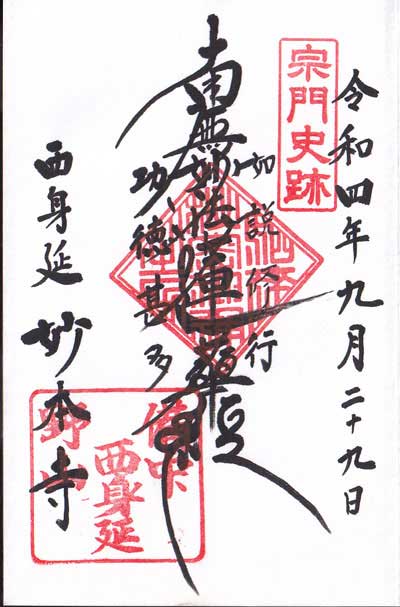 令和四年九月二十九日
宗門史跡
如説修行
南無妙法蓮華経
功徳甚多
西身延 妙本寺
備中
西身延
野山